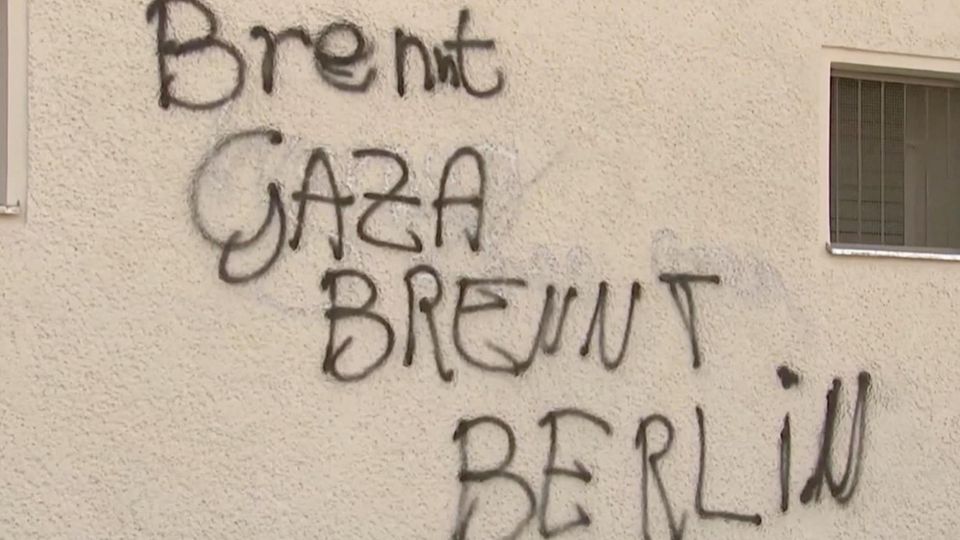 Brennt
GAZA
BRENNT
BERLiN